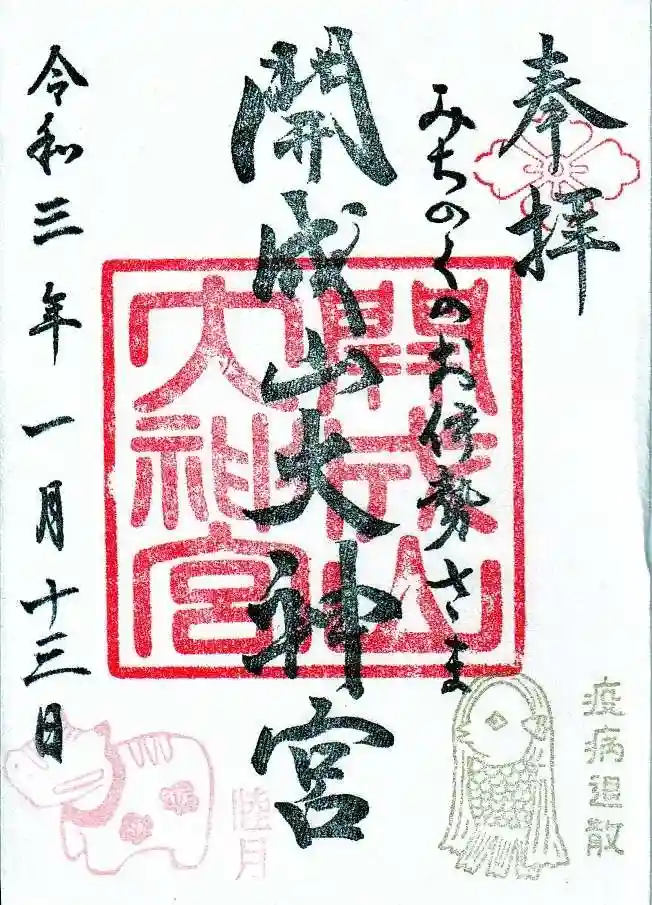 奉拝
みちのくのお伊勢さま
開成山大神宮
令和三年一月十三日
開成山
大神宮
疫病退散
睦月